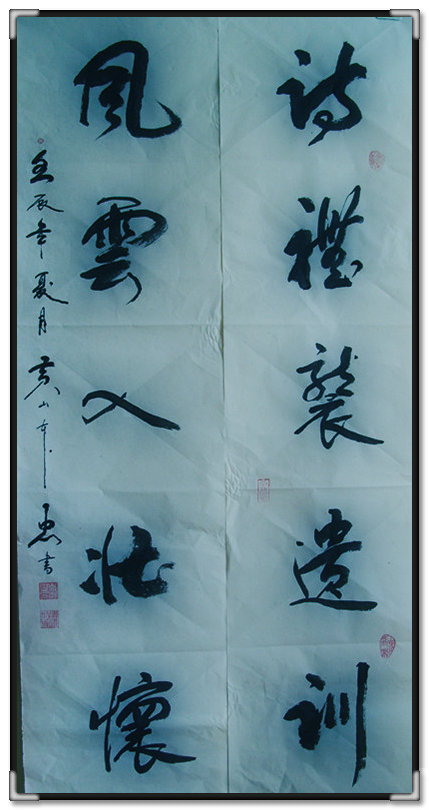 詩禮襲遺訓
風雲入壯懷
壬辰年夏月黄山
書